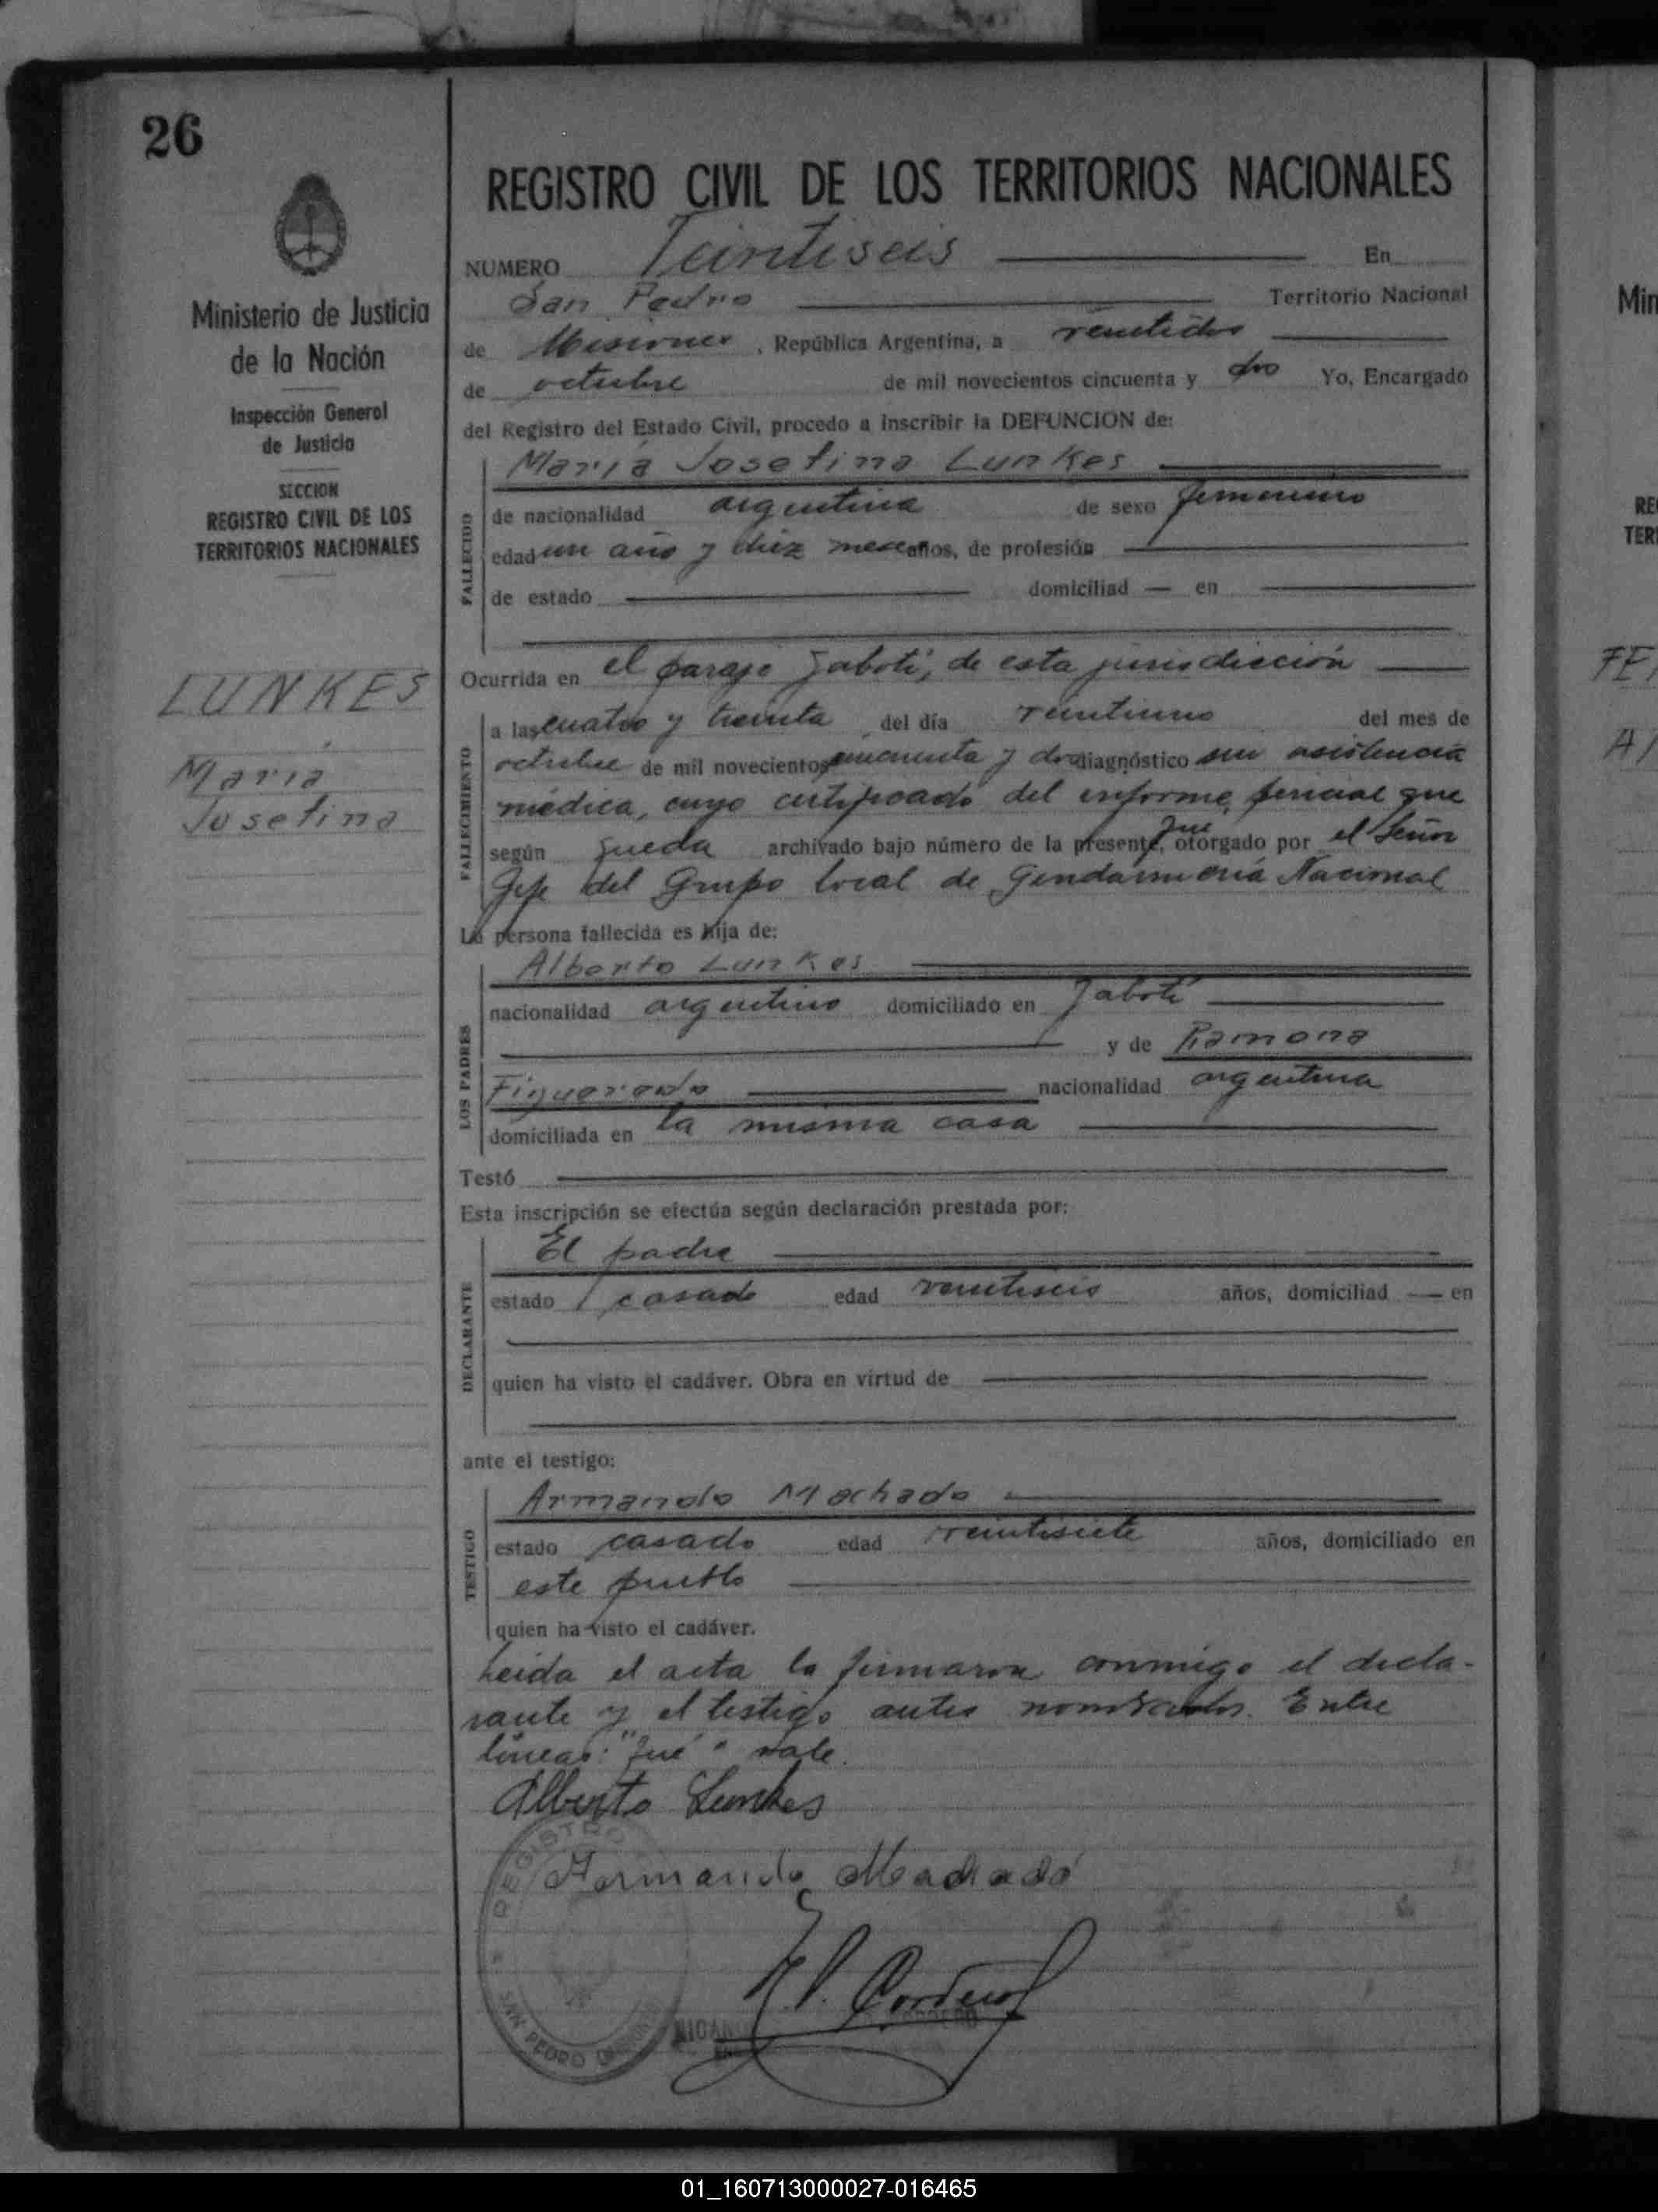 26
REGISTRO CIVIL DE LOS TERRITORIOS NACIONALES
Ministerio de Justicia
de la Nación
Inspección General
de Justicia
SECCION
REGISTRO CIVIL DE LOS
TERRITORIOS NACIONALES
LUNKES
María
Josefina
NUMERO Veintiseis En
San Pedro Territorio Nacional
de Misiones, República Argentina, a veintidos
de octubre de mil novecientos cincuenta y dos Yo, Encargado
del Registro del Estado Civil, procedo a inscribir la DEFUNCION de:
FALLECIDO
María Josefina Lunkes
de nacionalidad argentina de sexo femenino
edad un año y diez meses años, de profesión
de estado domiciliad — en
Ocurrida en el paraje Jabotí, de esta jurisdicción
FALLECIMIENTO
a las cuatro y treinta del día veintiuno del mes de
octubre de mil novecientos cincuenta y dos diagnóstico sin asistencia
médica, cuyo certificado del informe pericial que
según queda archivado bajo número de la presente, fué otorgado por el Señor
Jefe del Grupo local de Gendarmería Nacional
La persona fallecida es hija de:
LOS PADRES
Alberto Lunkes
nacionalidad argentino domiciliado en Jabotí
y de Ramona
Figueredo nacionalidad argentina
domiciliada en la misma casa
Testó
Esta inscripción se efectúa según declaración prestada por:
DECLARANTE
El padre
estado casado edad veintiseis años, domiciliad — en
quien ha visto el cadáver. Obra en virtud de
ante el testigo:
TESTIGO
Armando Machado
estado casado edad veintisiete años, domiciliado en
este pueblo
quien ha visto el cadáver.
Leida el acta la firmaron conmigo el decla-
rante y el testigo antes nombrados. Entre
líneas: "fué" vale.
Alberto Lunkes
Armando Machado
REGISTRO
SAN PEDRO
Min
RE
TER
FE
A
01_160713000027-016465